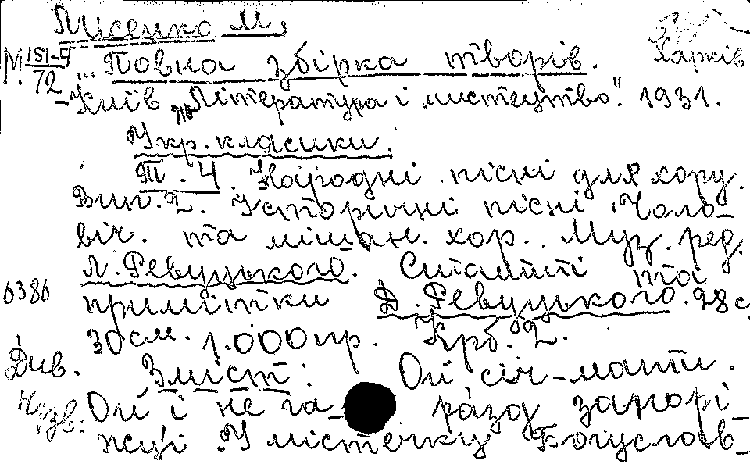 Лисенко М.
М. 151-4/72 Повна збірка творів. Харків
– Київ „Література і мистецтво". 1931.
Укр. класики.
Т. 4 Народні пісні для хору.
Вип. 2. Історичні пісні. Чоло-
віч. та мішан. хор.. Муз. ред.
Л. Ревуцького. Статті та
примітки Д. Ревуцького. 98 с
30 см. 1.000 пр. Крб. 2.
Див. Зміст: Ой січ-мати.
Ой і не га- разд запорі-
жці У містечку Богуслав-